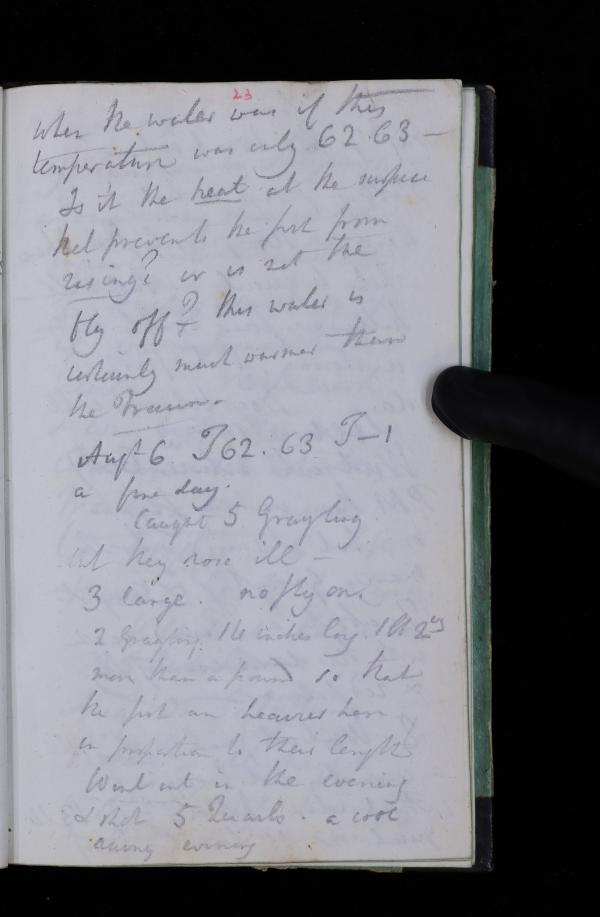 23
when the water was of this
temperature was only 62.63 —
Is it the heat at the surface
that prevents the fish from
rising? or is not the
fly off? this water is
certainly much warmer than
the Traun.
Augt 6 T 62. 63 T—1
a fine day.
Caught 5 Grayling
but they rose ill —
3 large. no fly on.
2 Grayling 14 inches long. 1 lb 2
more than a pound so that
the fish are heavier here
in proportion to their length
Went out in the evening
& shot 5 Quails. a cool
evening